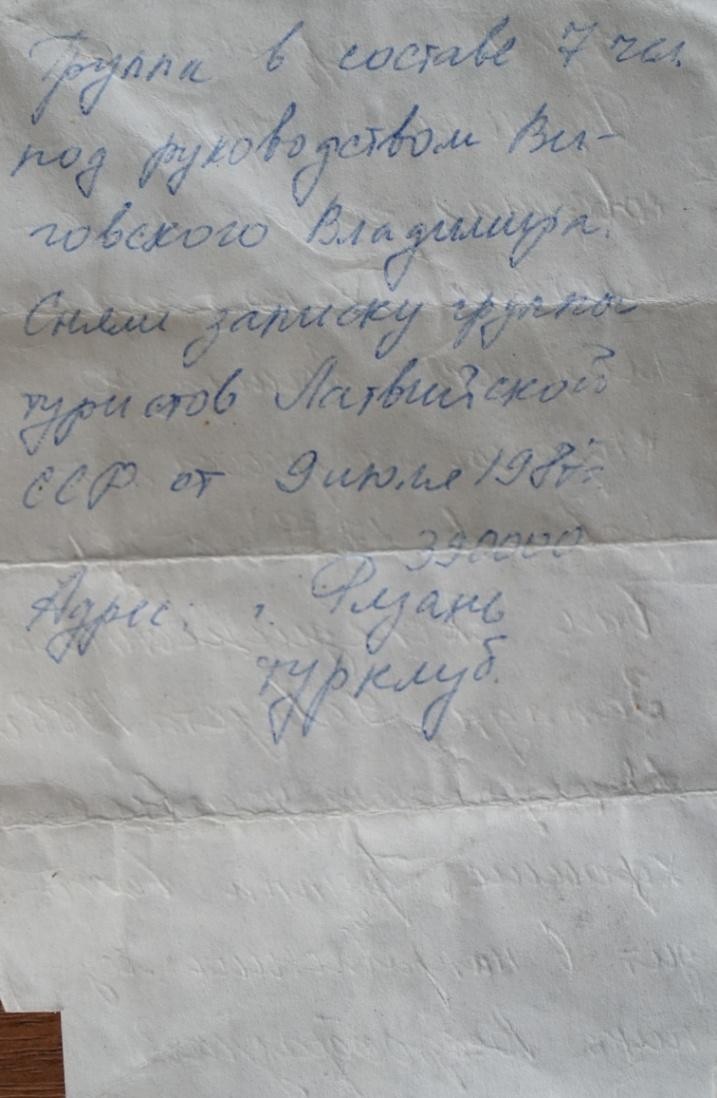 Группа в составе 7 чел.
под руководством Ви-
говского Владимира.
Сняли записку группы
туристов Латвийской
ССР от 9 июля
390000
Адрес: г. Рязань
турклуб.